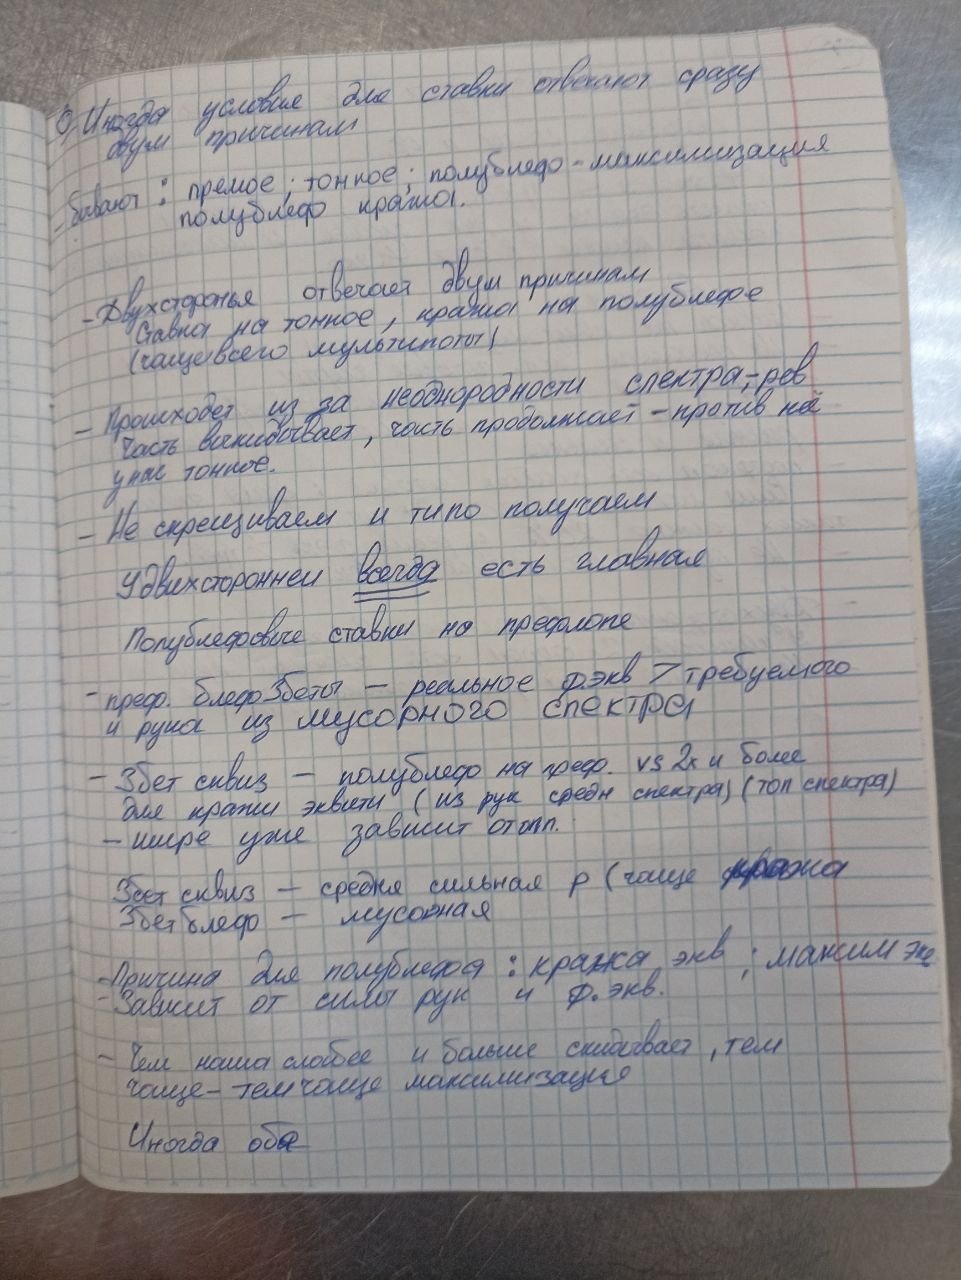 6) Иногда условие для ставки отвечают сразу
двум причинам
- бывают: прямое; тонкое; полублеф-максимизация
полублеф кража.
- Двухсторонья отвечает двум причинам
Ставка на тонкое, кража на полублефе
(чаще всего мультипоты)
- Происходет из за неоднородности спектра;-рев
Часть выкидывает, часть продолжает - против неё
у нас тонкое.
- Не скрещиваем и типо получаем
У двихсторонней всегда есть главная
Полублефовые ставки на префлопе
- преф. блеф 3беты - реальное ф.экв > требуемого
и рука из мусорного спектра
- 3бет сквиз - полублеф на преф. vs 2х и более
для кражи эквити (из рук средн спектра) (топ спектра)
- шире уже зависит от опп.
3бет сквиз - средня сильная р (чаще кража
3бет блеф - мусорная
- Причина для полублефа: кража экв; максим экв
- Зависит от силы рук и ф.экв.
- Чем наша слабее и больше скидывает, тем
чаще - тем чаще максимизация
Иногда оба